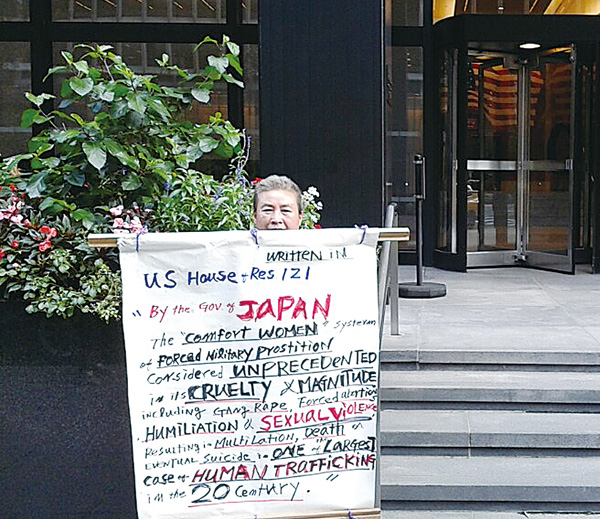 WRITTEN IN
US HOUSE Res 121
" By the Gov. of JAPAN
The "COMFORT WOMEN" System
of FORCED Military Prostition
Considered UNPRECEDENTED
in its CRUELTY & MAGNITUDE
including Gang Rape, Forced abortion
HUMILIATION & SEXUAL VIOLENCE
Resulting in Mutilation, Death or
EVENTUAL Suicide in ONE of "Largest
case of HUMAN TRAFFICKING
in the 20 Century."